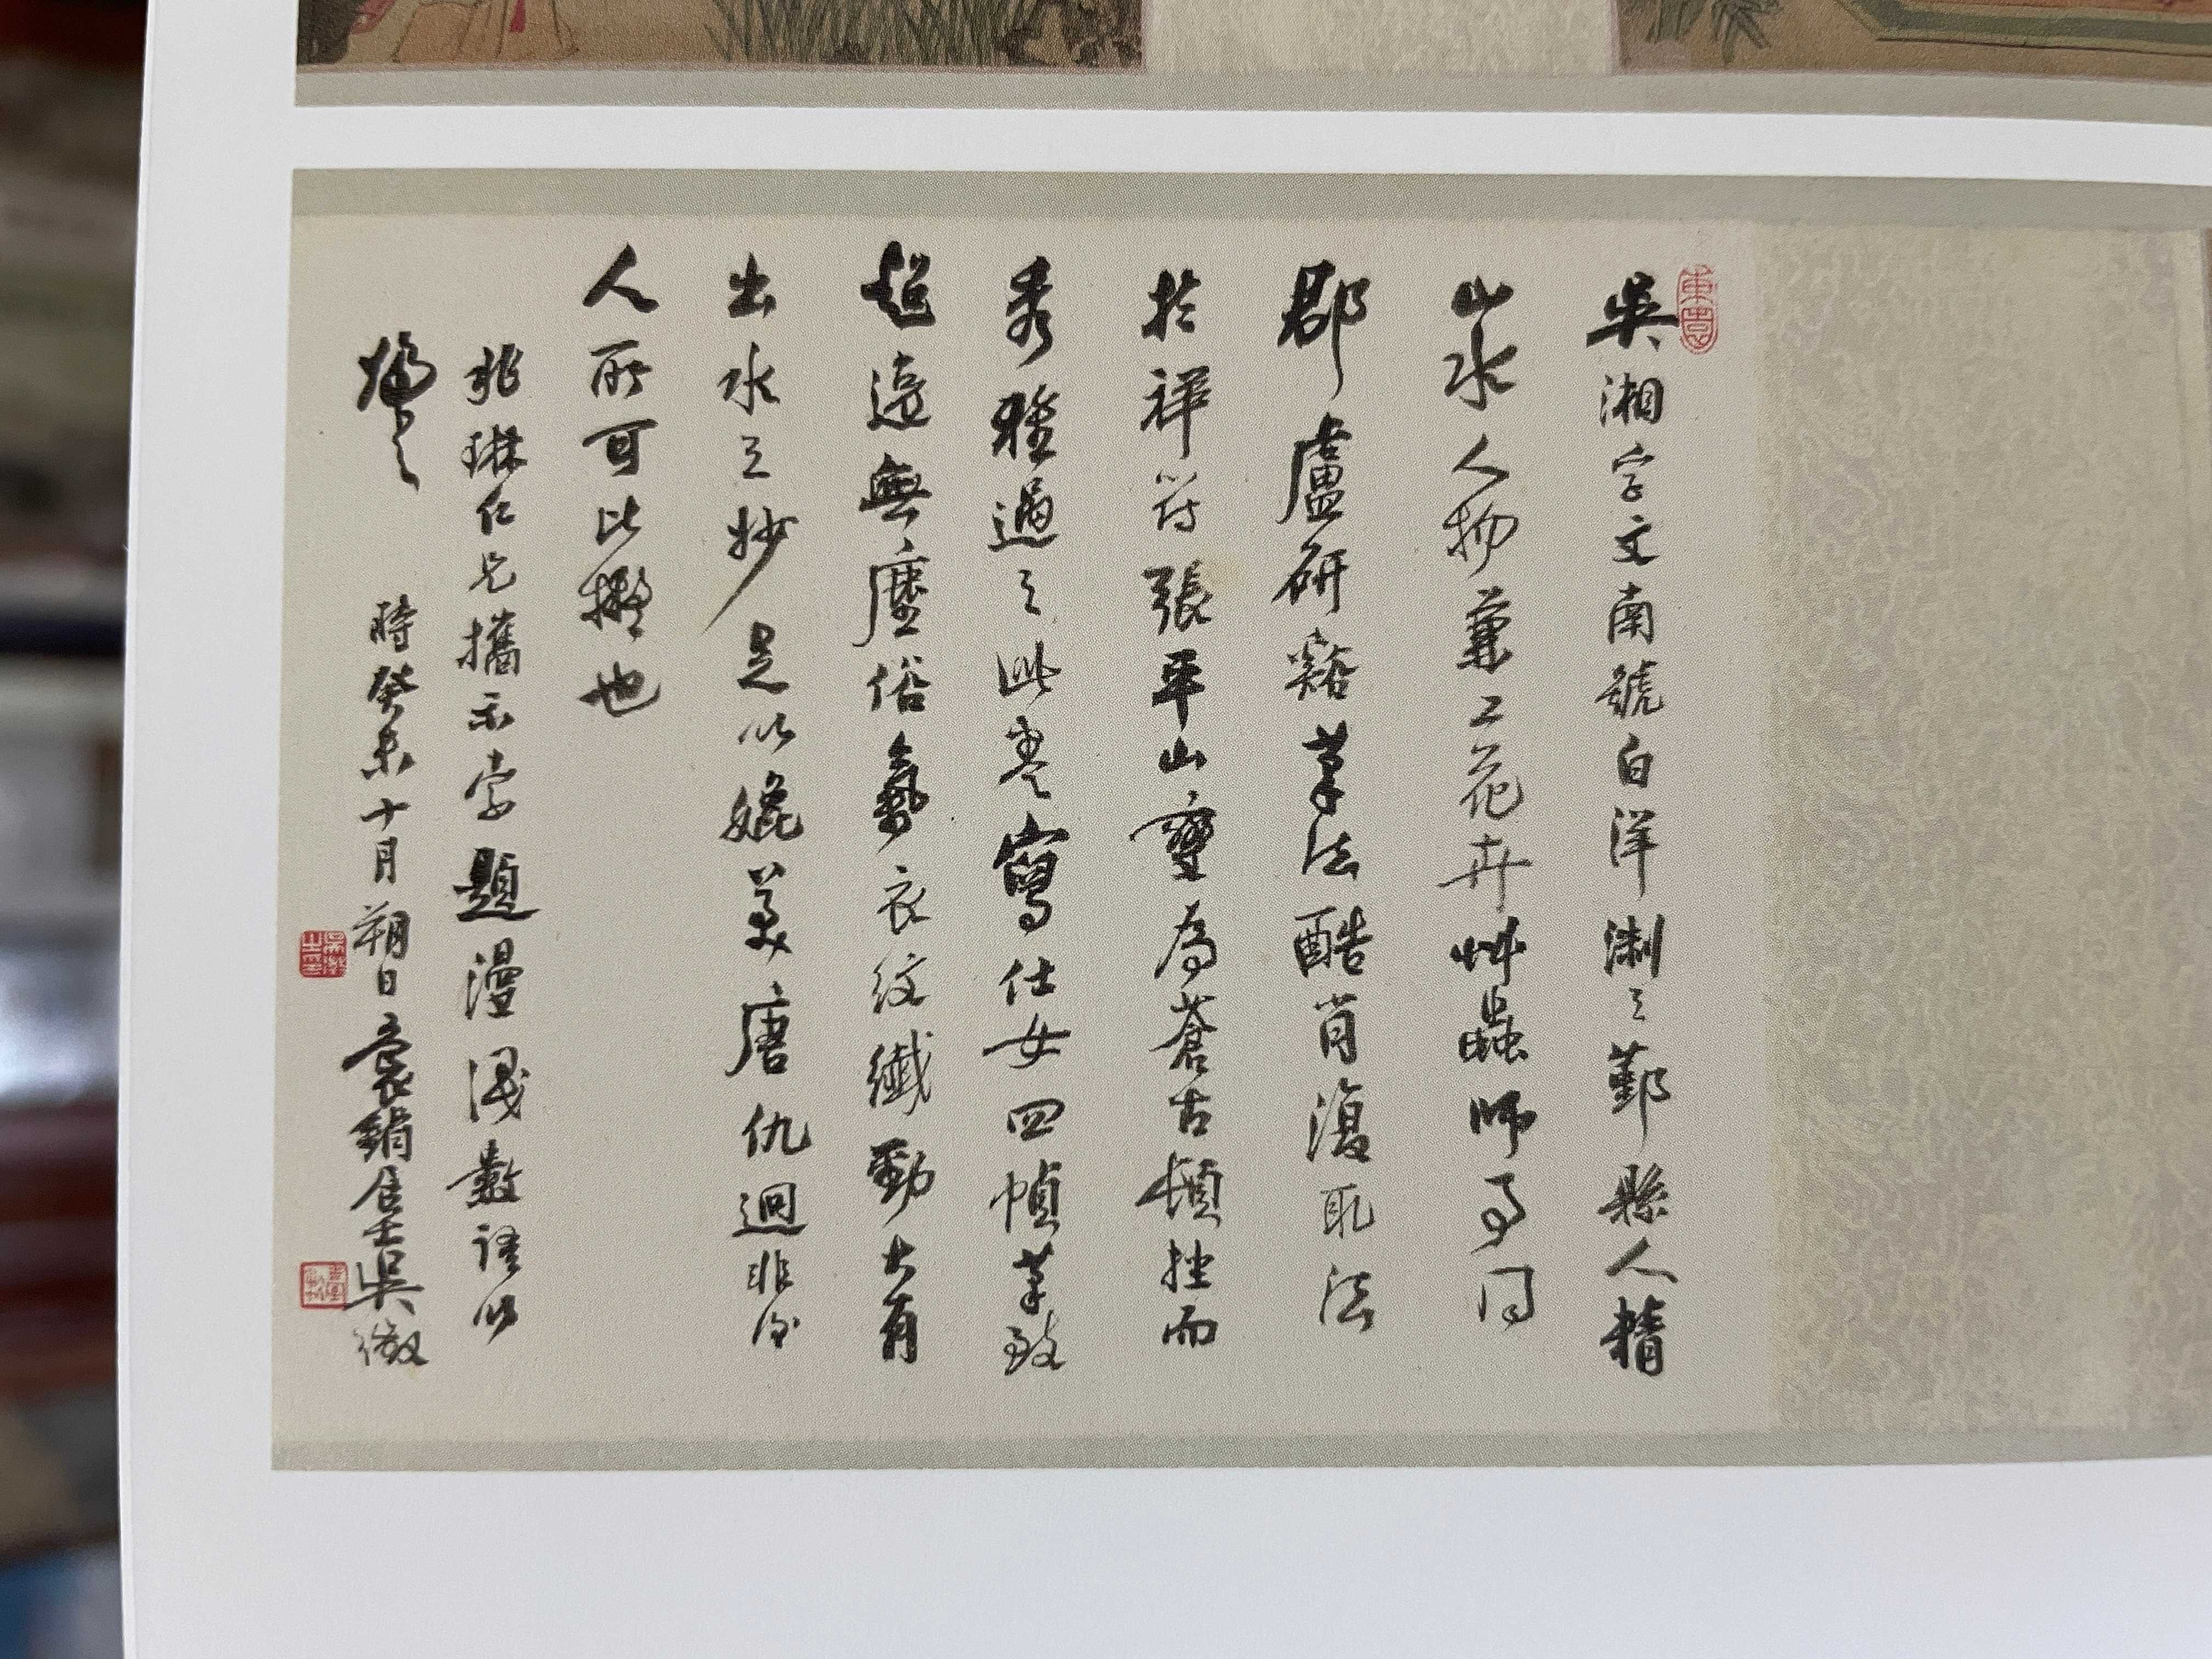 吳湘字文南號白洋浙之鄞縣人精
山水人物兼工花卉艸蟲師事同
郡盧研谿筆法酷肖復取法
於祥符張平山變為蒼古頓挫而
秀雅過之此卷寫仕女四幀筆致
超逸無塵俗氣衣紋纖勁大有
出水之妙是以媲美唐仇迥非今
人所可比擬也
琳仁兄攜示索題漫識數語以
時癸未十月朔日袌鋗居士吳徵